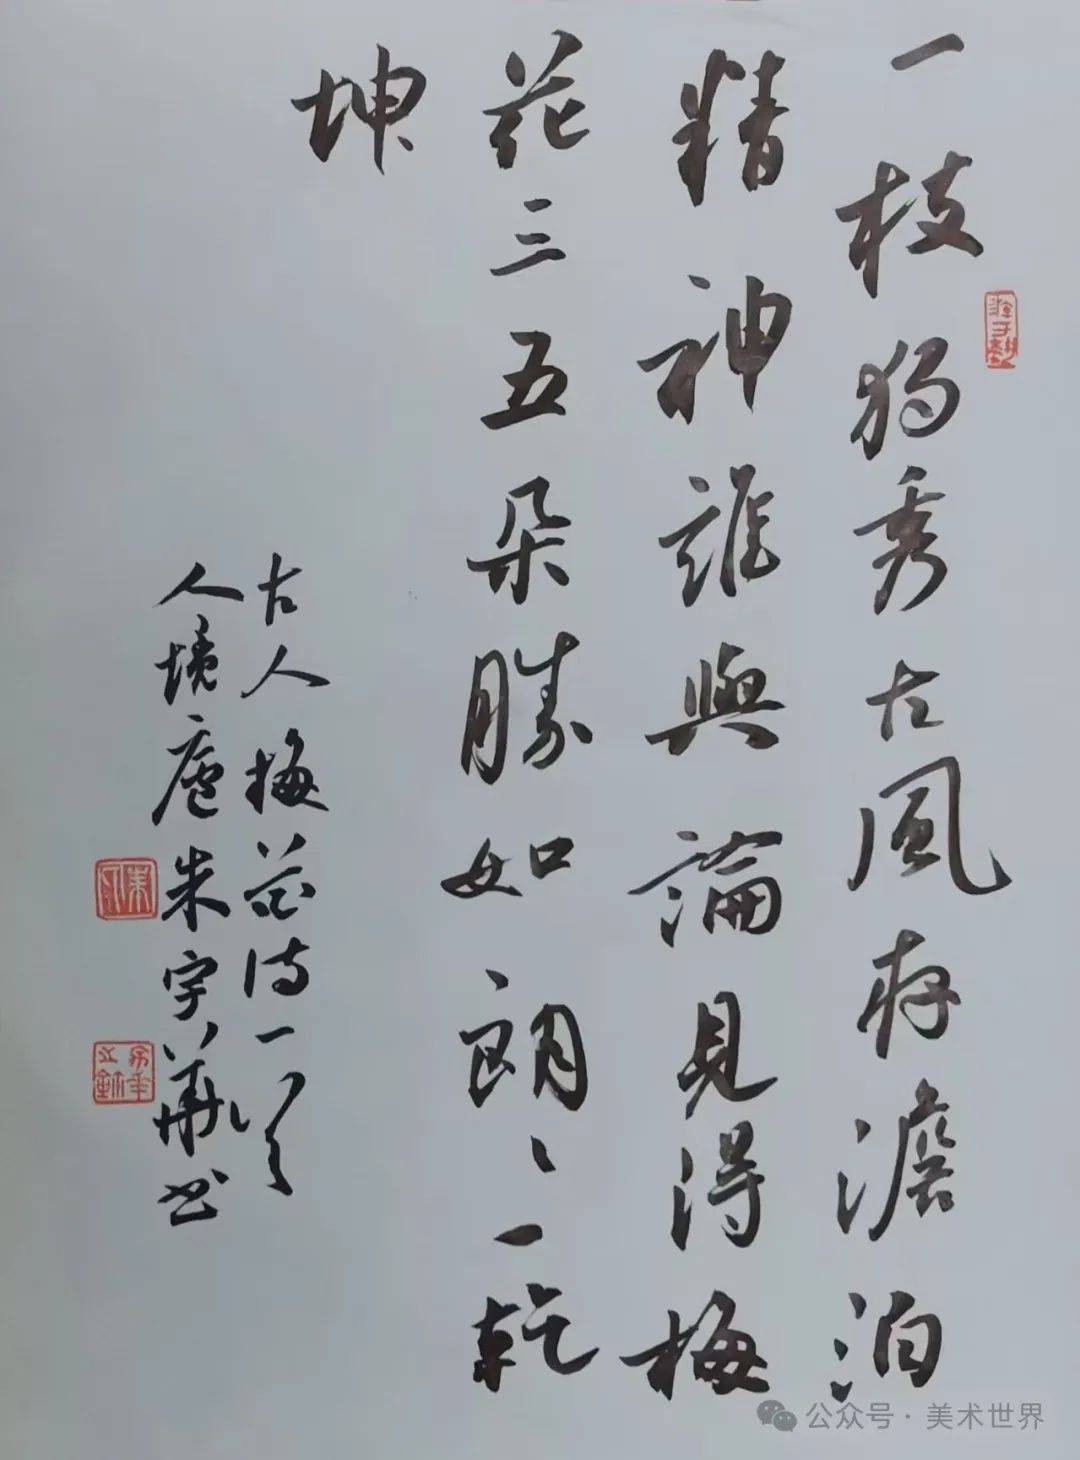 一枝獨秀古風存澹泊
精神誰與論見得梅
花三五朵勝如朗〻一乾
坤
古人梅花詩一首
人境廬朱宇華书
公众号·美术世界